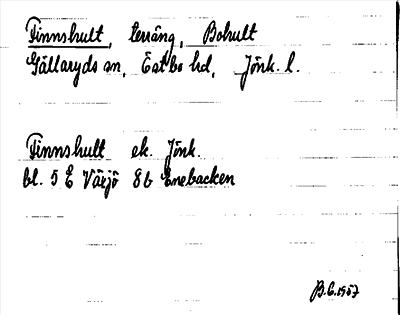 Finnshult, terräng, Bohult
Gällaryds sn, Östbo hd, Jönk. l.
Finnshult ek. Jönk.
bl. 5 E Växjö 8b Enebacken
B.E.1957